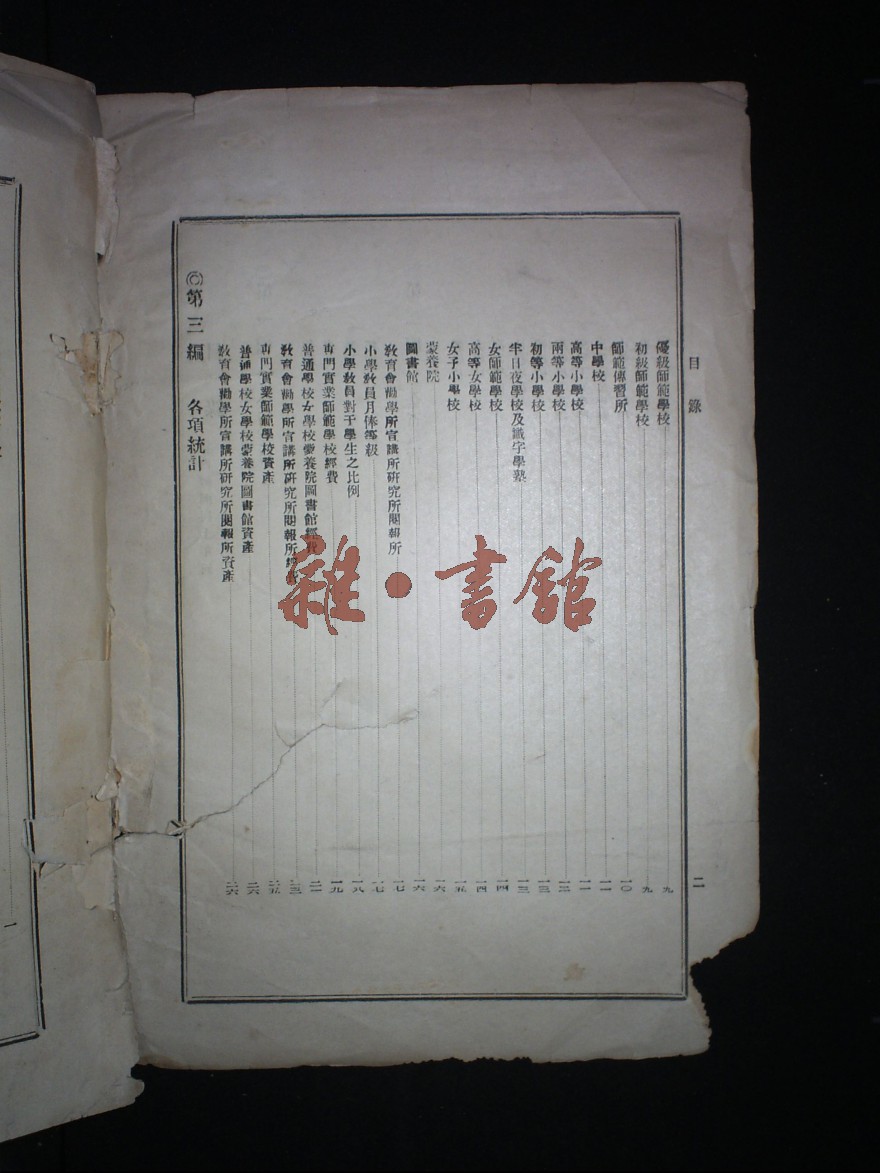 目錄 二
優級師範學校 九
初級師範學校 九
師範傳習所 一〇
中學校 一一
高等小學校 一一
兩等小學校 一二
初等小學校 一三
半日夜學校及識字學塾 一三
女師範學校 一四
高等女學校 一四
女子小學校 一五
蒙養院 一六
圖書館 一六
教育會勸學所宣講所研究所閱報所 一七
小學教員月俸等級 一七
小學教員對于學生之比例 一八
專門實業師範學校經費 一九
普通學校女學校蒙養院圖書館經費 二一
教育會勸學所宣講所研究所閱報所經費
專門實業師範學校資產 二五
普通學校女學校蒙養院圖書館資產 二六
教育會勸學所宣講所研究所閱報所資產 二六
◎第三編 各項統計
雜·書館